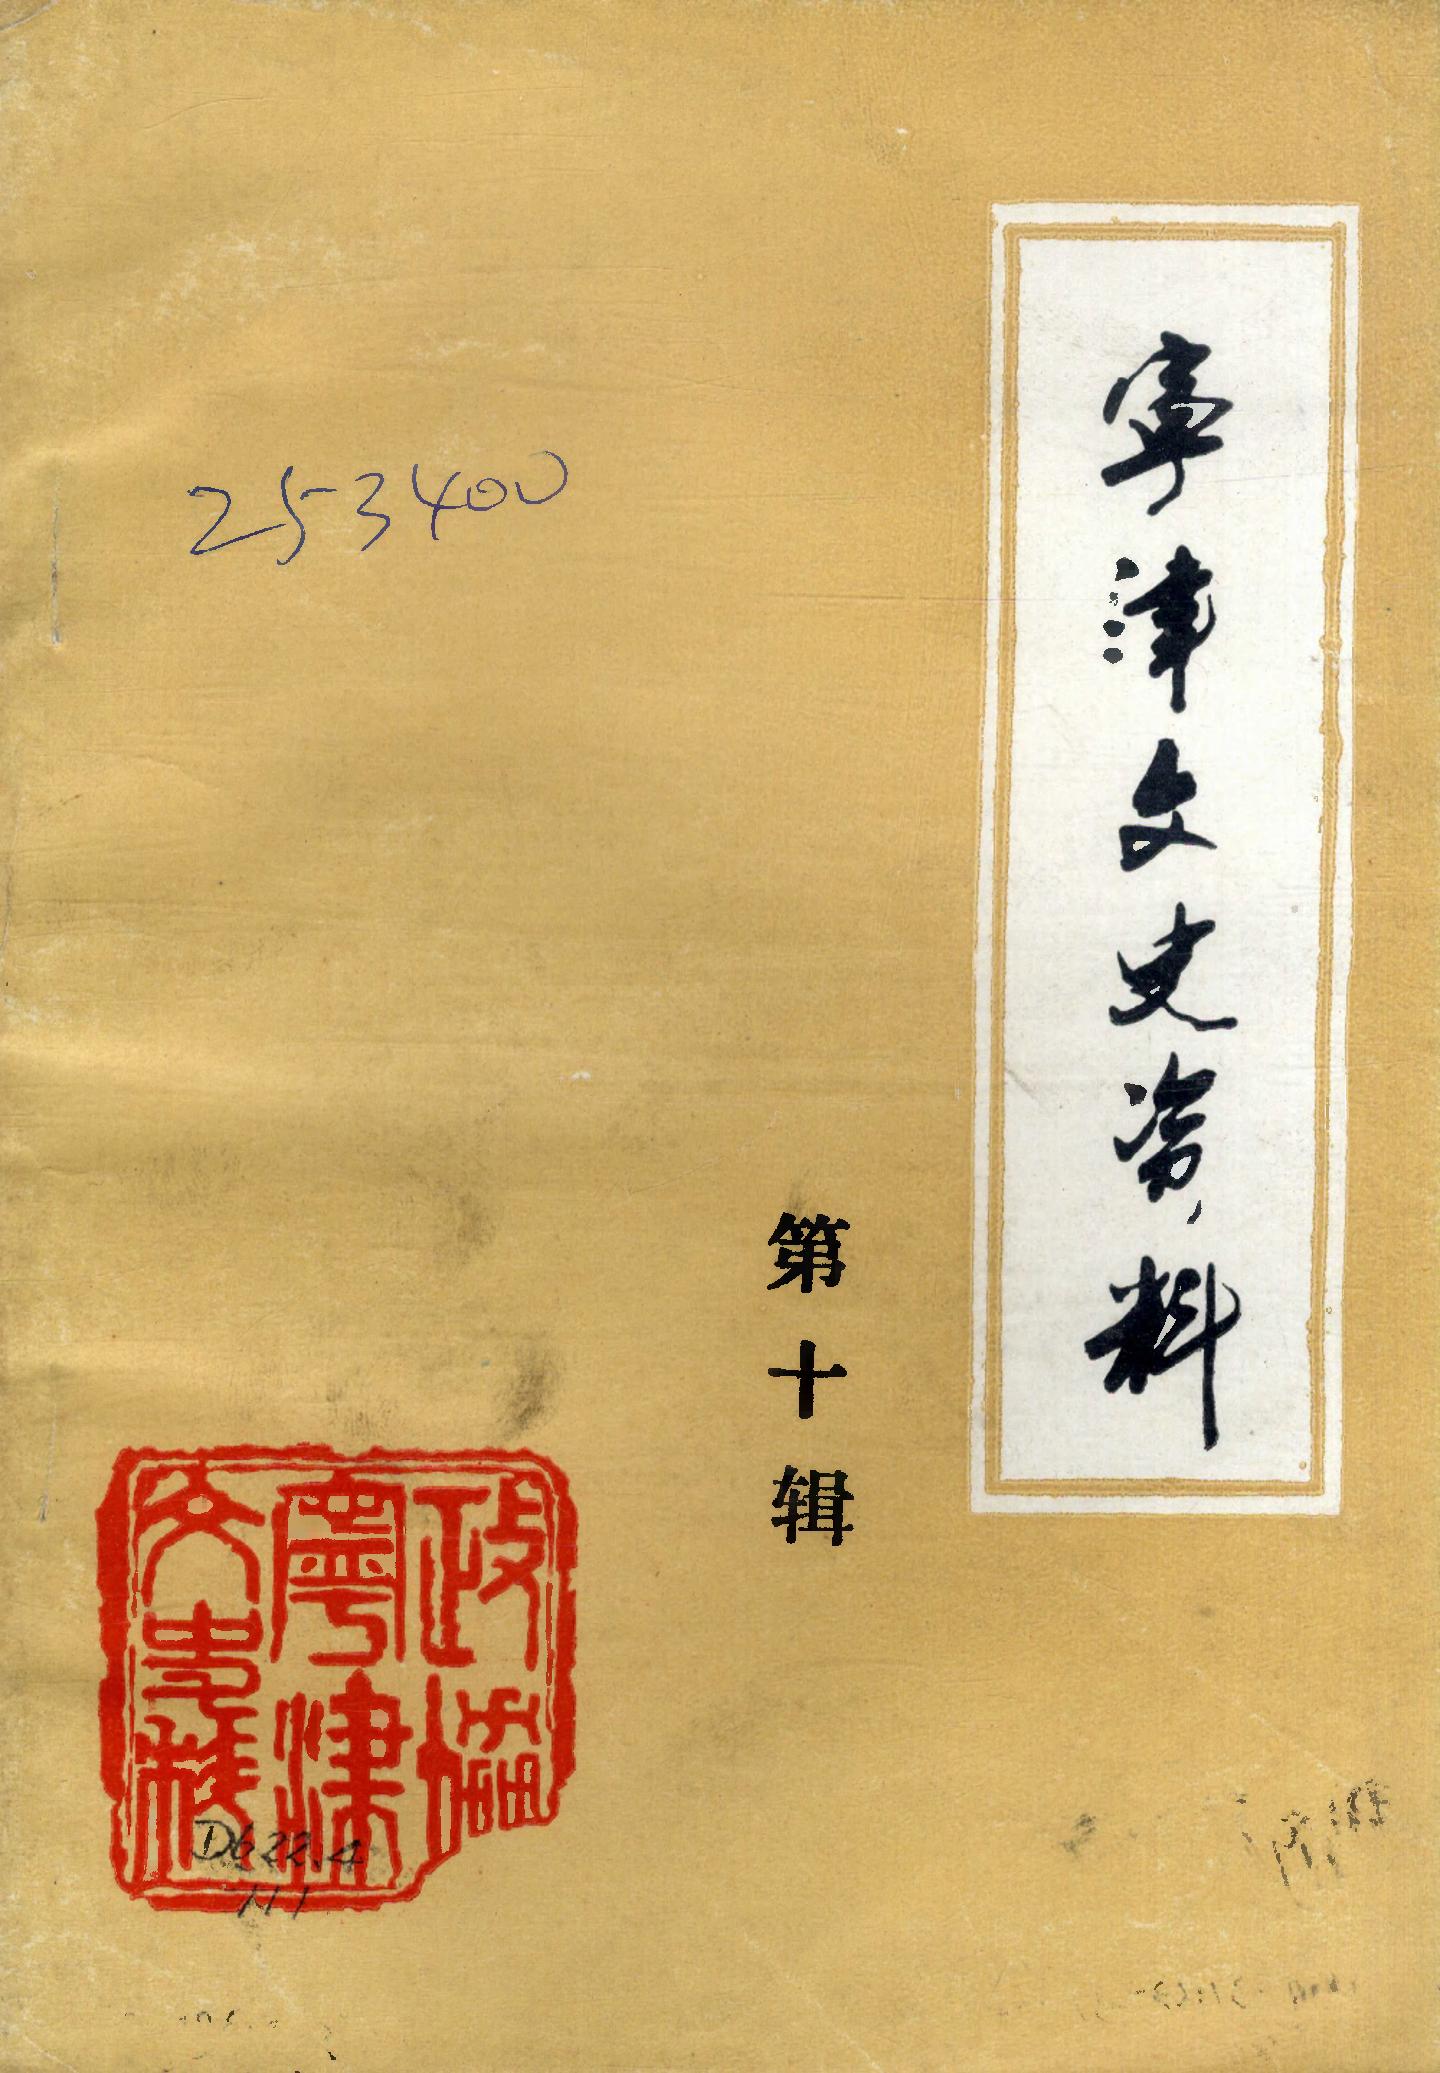 寧津文史资料
第十辑
253400
政协
寧津
文史
D622.4